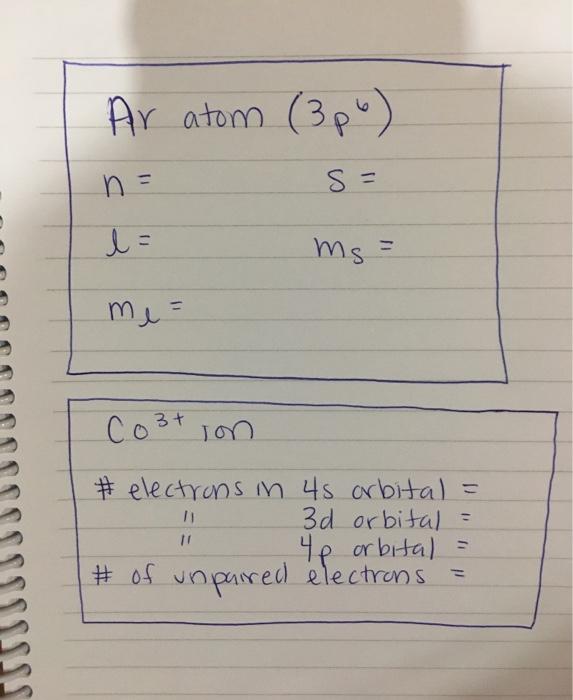 Ar atom (3p⁶)
n = S =
l = ms =
ml =
Co³⁺ ion
# electrons in 4s orbital =
" 3d orbital =
" 4p orbital =
# of unpaired electrons =